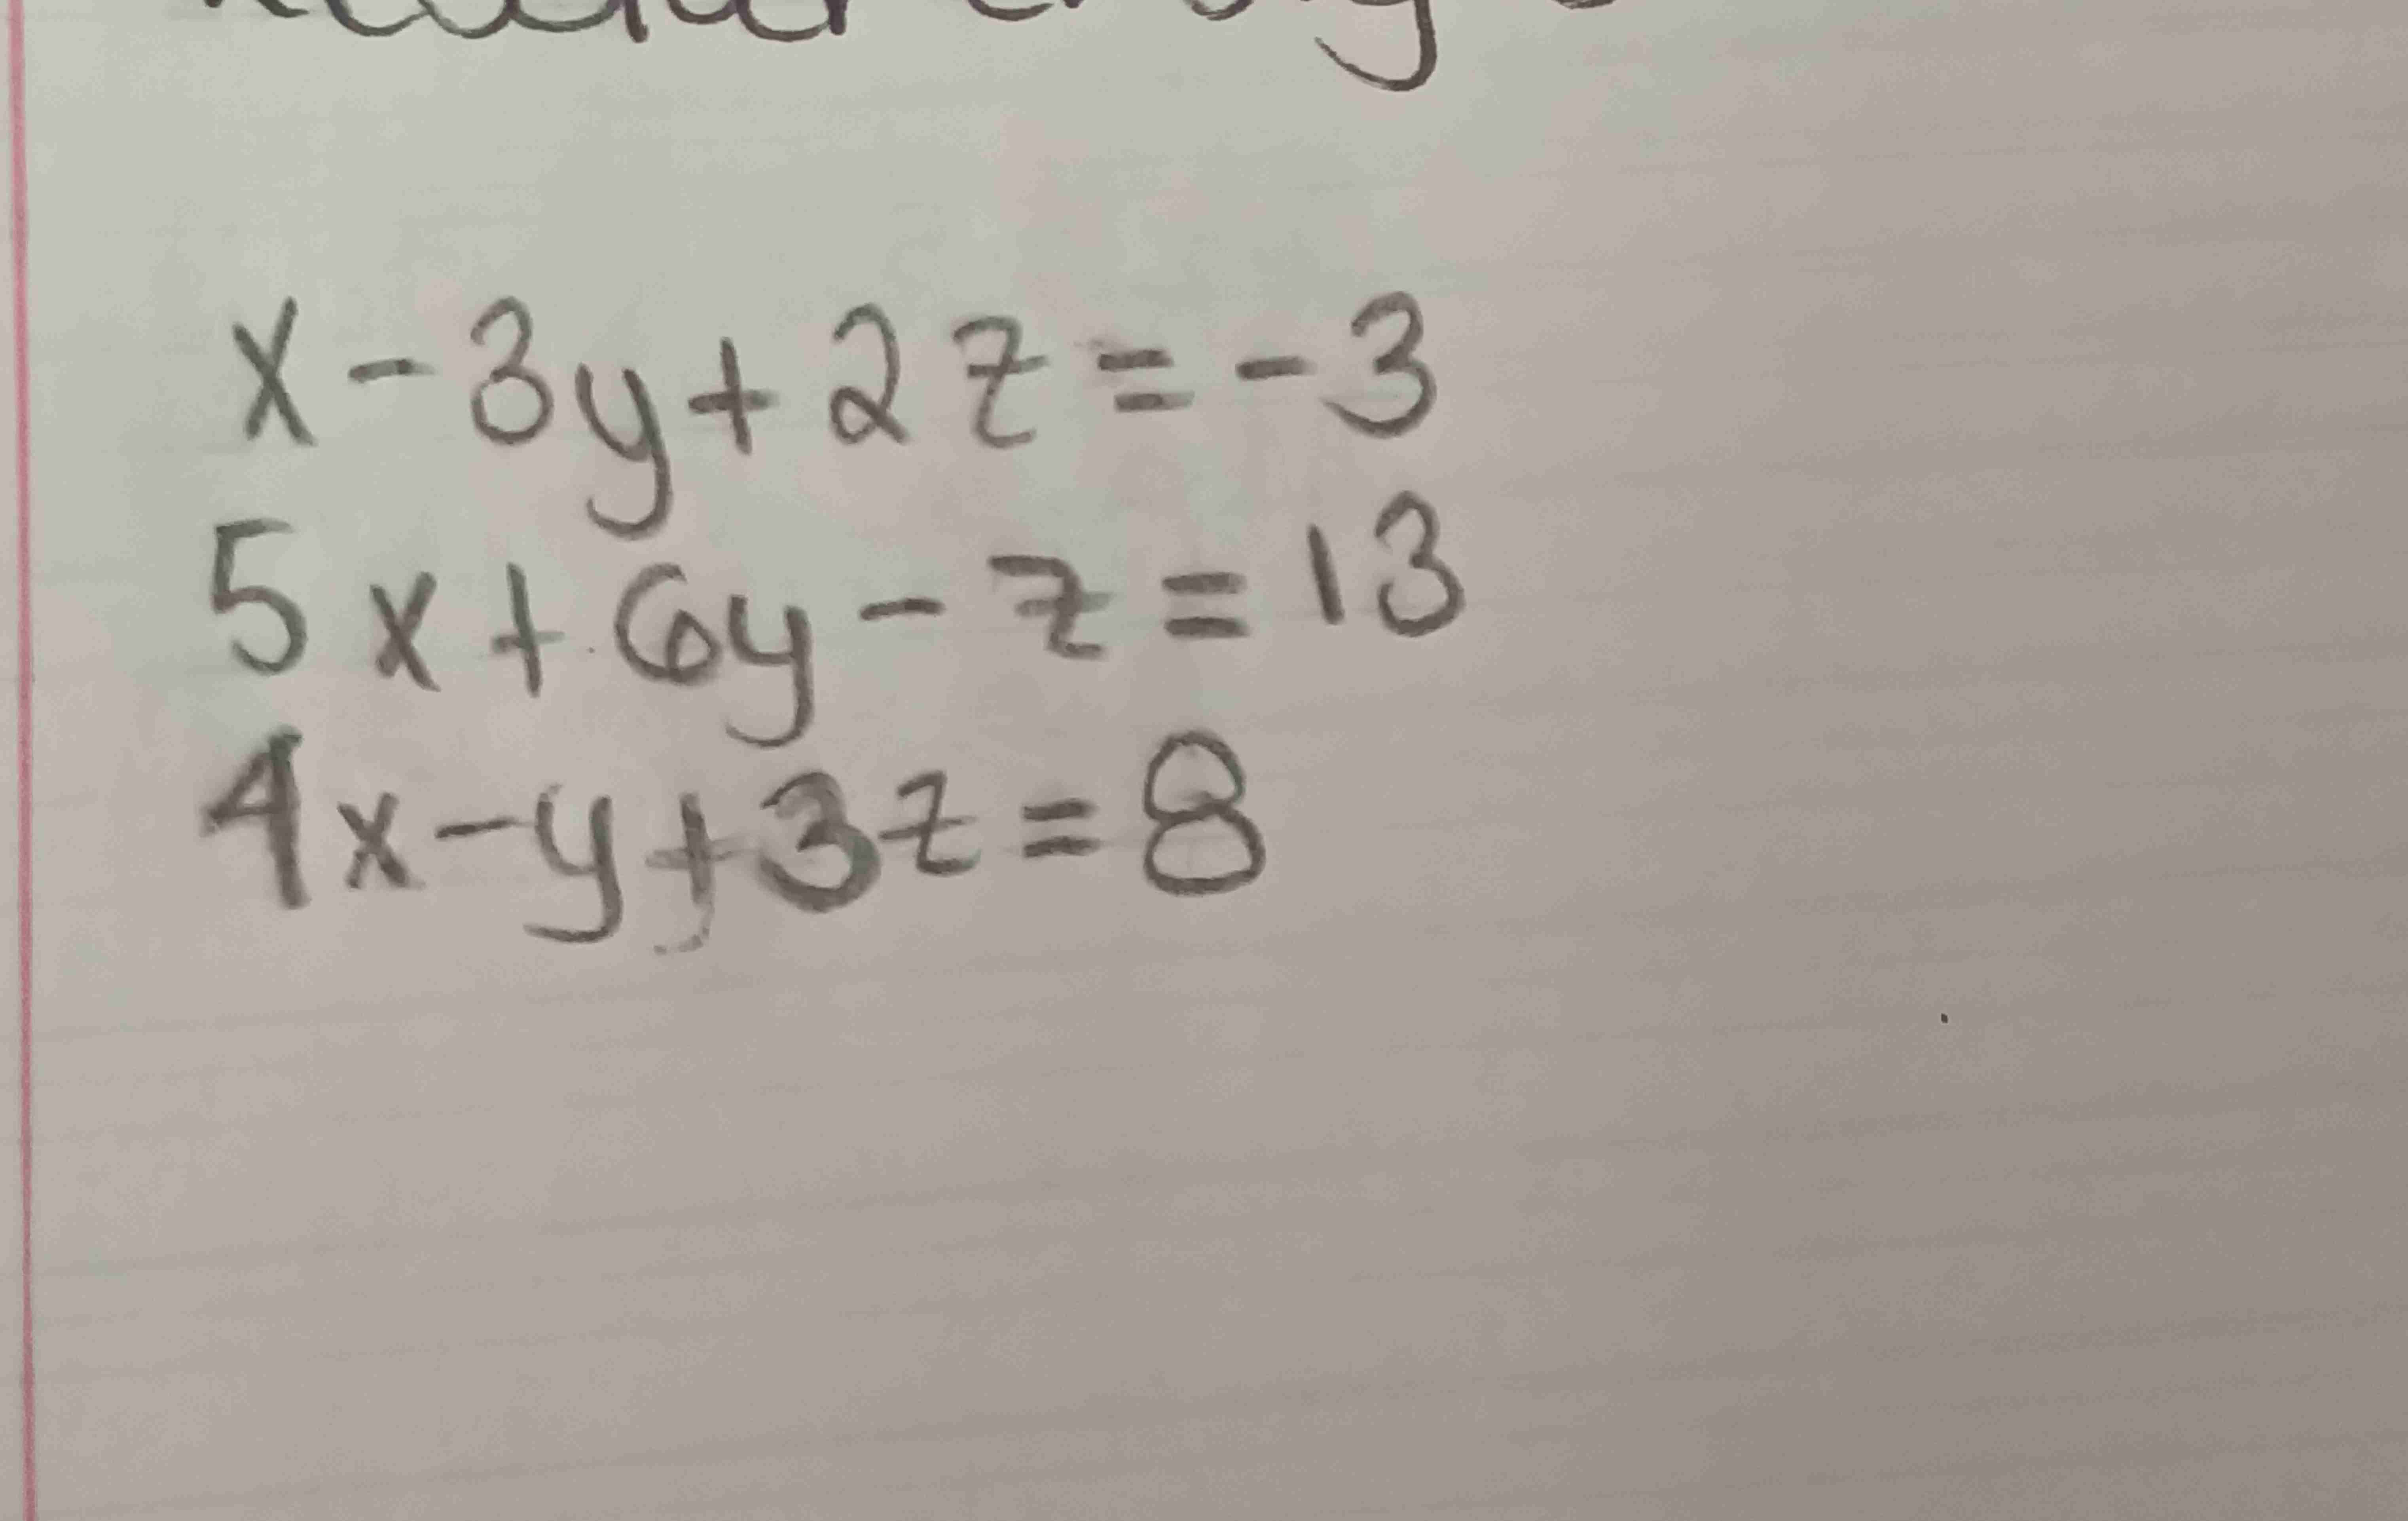 x - 3y + 2z = -3
5x + 6y - z = 13
4x - y + 3z = 8